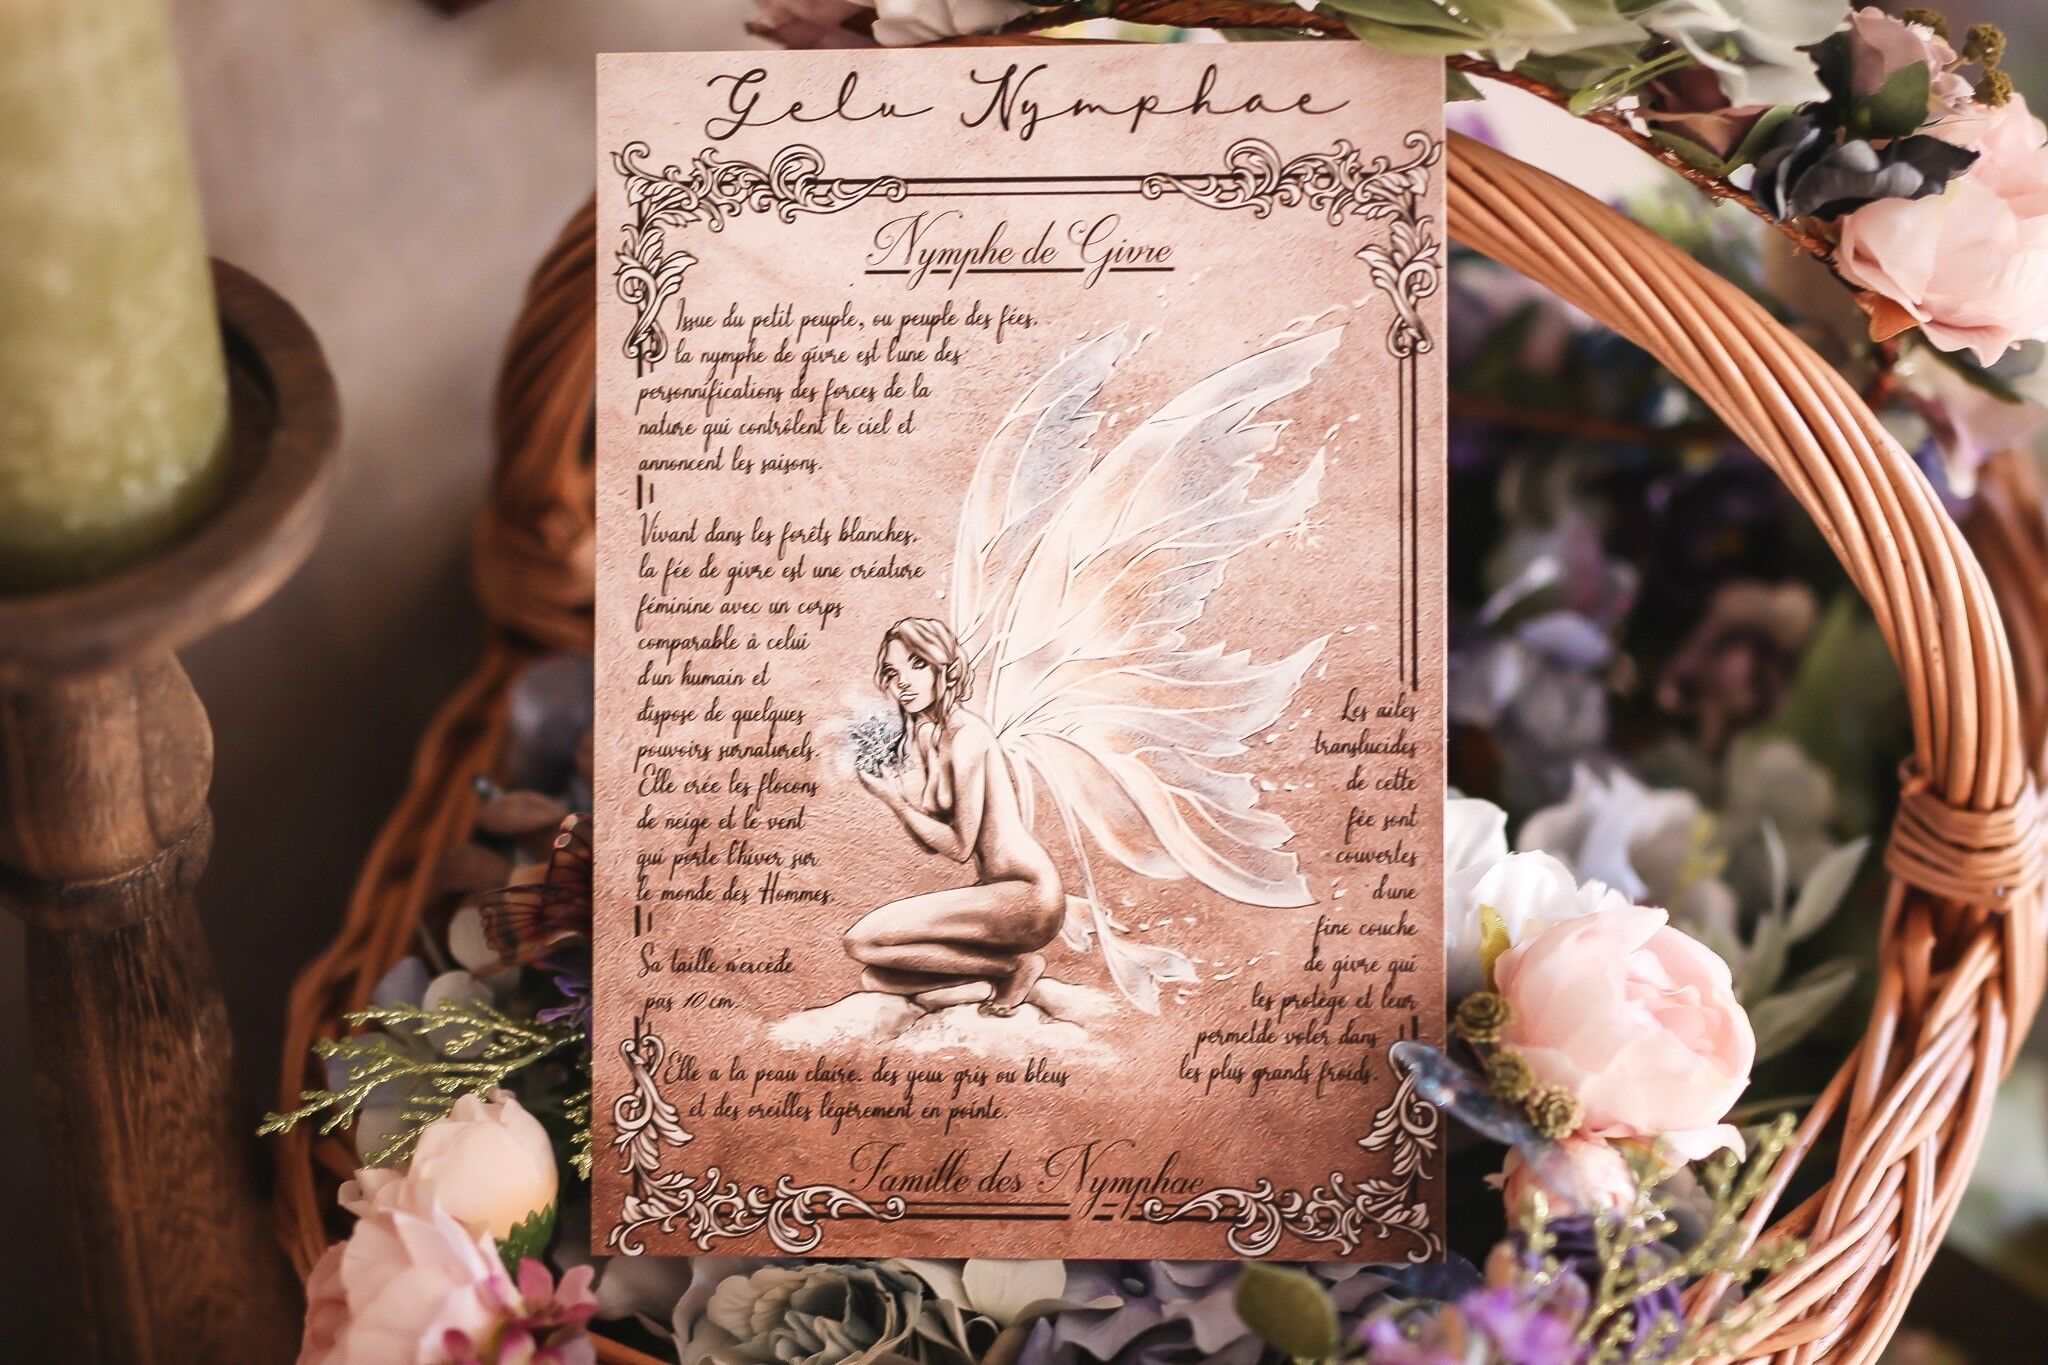 Gelu Nymphae
Nymphe de Givre
Issue du petit peuple, ou peuple des fées,
la nymphe de givre est l'une des
personnifications des forces de la
nature qui contrôlent le ciel et
annoncent les saisons.
Vivant dans les forêts blanches,
la fée de givre est une créature
féminine avec un corps
comparable à celui
d'un humain et
dispose de quelques
pouvoirs surnaturels.
Elle crée les flocons
de neige et le vent
qui porte l'hiver sur
le monde des Hommes.
Sa taille n'excède
pas 10 cm.
Elle a la peau claire, des yeux gris ou bleus
et des oreilles légèrement en pointe.
Les ailes
translucides
de cette
fée sont
couvertes
d'une
fine couche
de givre qui
les protège et leur
permet de voler dans
les plus grands froids.
Famille des Nymphae